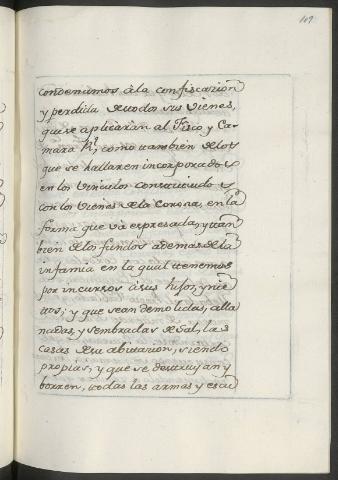 109
condenamos à la confiscazion
y perdida de todos sus vienes,
que se aplicaran al Fisco y Ca-
mara Rl, como tambien de los
que se hallaren incorporados
en los Vinculos constituidos
con los Vienes de la Corona, en la
forma que và expresada, y tam
bien de los fundos ademas de la
infamia en la qual tenemos
por incursos à sus hijos, y nie
tos; y que sean demolidas, alla
nadas, y sembradas de Sal, las
casas de su abitazion, siendo
propias, y que se destruijan y
borren, todas las armas y escu